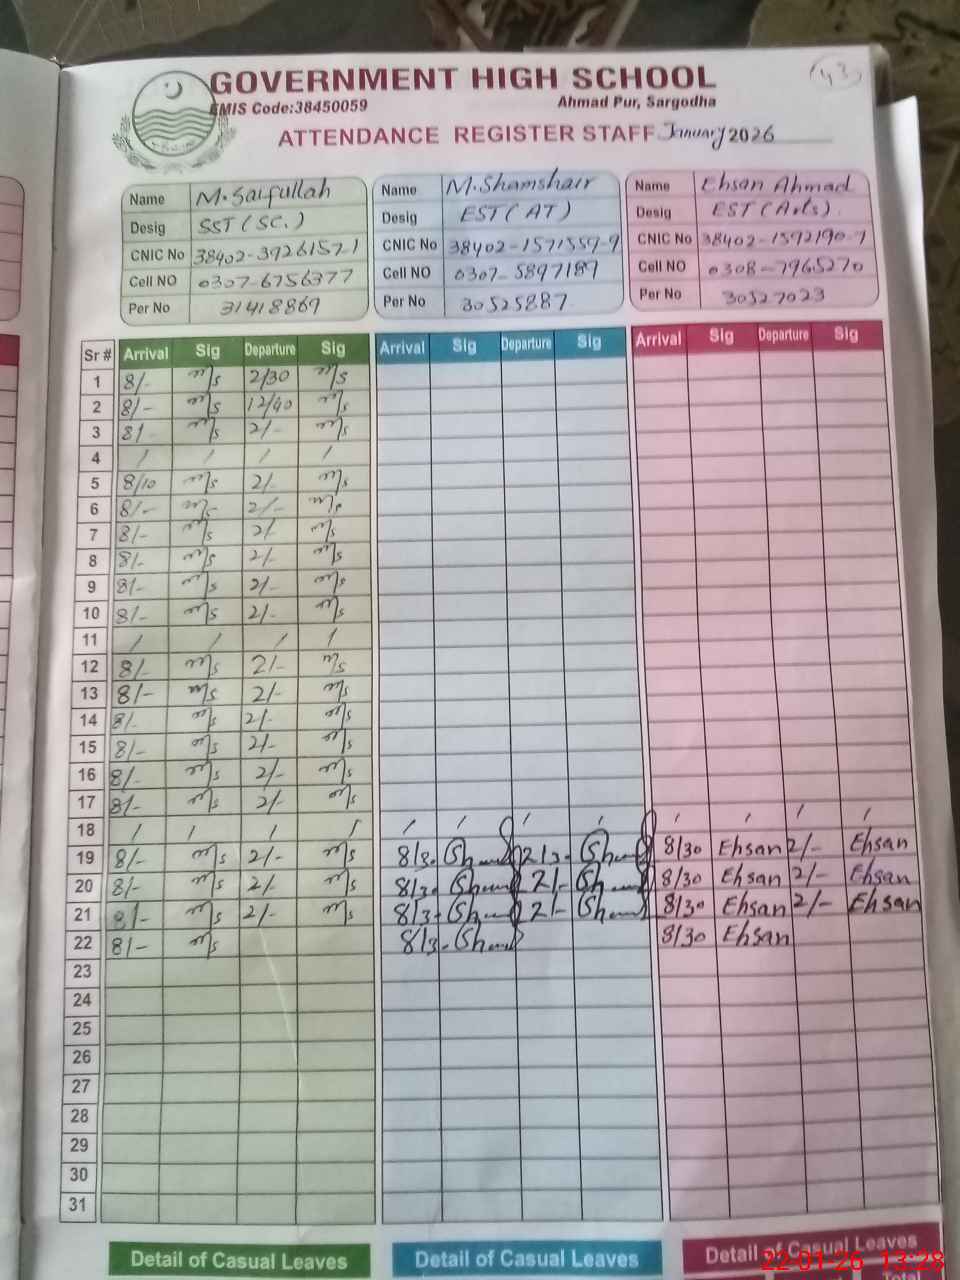 43
GOVERNMENT HIGH SCHOOL
EMIS Code:38450059 Ahmad Pur, Sargodha
ATTENDANCE REGISTER STAFF January 2026
Name M. Saifullah Name M. Shamshair Name Ehsan Ahmad
Desig SST (SC.) Desig EST (AT) Desig EST (Arts).
CNIC No 38402-3926157-1 CNIC No 38402-1571559-9 CNIC No 38402-1592190-7
Cell NO 0307-6756377 Cell NO 0307-5897189 Cell NO 0308-7965270
Per No 31418869 Per No 30525887 Per No 30527023
Sr # Arrival Sig Departure Sig Arrival Sig Departure Sig Arrival Sig Departure Sig
1 8/- m/s 2/30 m/s
2 8/- m/s 12/40 m/s
3 8/- m/s 2/- m/s
4 / / / /
5 8/10 m/s 2/- m/s
6 8/- m/s 2/- m/s
7 8/- m/s 2/- m/s
8 8/- m/s 2/- m/s
9 8/- m/s 2/- m/s
10 8/- m/s 2/- m/s
11 / / / /
12 8/- m/s 2/- m/s
13 8/- m/s 2/- m/s
14 8/- m/s 2/- m/s
15 8/- m/s 2/- m/s
16 8/- m/s 2/- m/s
17 8/- m/s 2/- m/s
18 / / / / / / / / / / / /
19 8/- m/s 2/- m/s 8/30 Sham 2/30 Sham 8/30 Ehsan 2/- Ehsan
20 8/- m/s 2/- m/s 8/30 Sham 2/- Sham 8/30 Ehsan 2/- Ehsan
21 8/- m/s 2/- m/s 8/30 Sham 2/- Sham 8/30 Ehsan 2/- Ehsan
22 8/- m/s 8/30 Sham 8/30 Ehsan
23
24
25
26
27
28
29
30
31
Detail of Casual Leaves Detail of Casual Leaves Detail of Casual Leaves
22-01-26 13:28